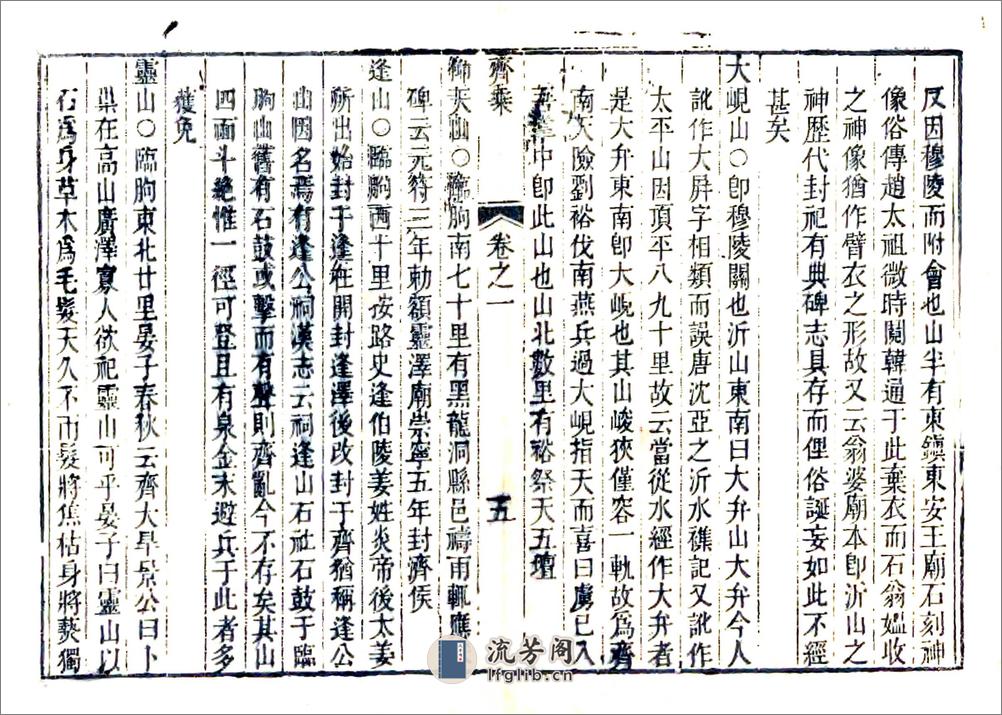 又因穆陵而附會也山半有東鎮東安王廟石刻神
像俗傳趙太祖微時鬩韓通于此棄衣而石翁媼收
之神像猶作臂衣之形故又云翁婆廟本即沂山之
神歷代封祀有典碑志具存而俚俗誕妄如此不經
甚矣
大峴山○即穆陵關也沂山東南曰大弁山大弁今人
訛作大屏字相類而誤唐沈亞之沂水襍記又訛作
太平山因頂平八九十里故云當從水經作大弁者
是大弁東南即大峴也其山峻狹僅容一軌故爲齊
南天險劉裕伐南燕兵過大峴指天而喜曰虜已入
吾掌中即此山也山北數里有裕祭天五壇
齊乘
卷之一
五
獅夾山○臨朐南七十里有黑龍洞縣邑禱雨輒應
碑云元符三年勅額靈澤廟崇寧五年封濟侯
逄山○臨朐西十里按路史逄伯陵姜姓炎帝後太姜
所出始封于逄在開封逄澤後改封于齊猶稱逄公
山因名焉有逄公祠漢志云祠逄山石社石鼓于臨
朐山舊有石鼓或擊而有聲則齊亂今不存矣其山
四面斗絶惟一徑可登且有泉金末避兵于此者多
獲免
靈山○臨朐東北廿里晏子春秋云齊大旱景公曰卜
祟在高山廣澤寡人欲祀靈山可乎晏子曰靈山以
石爲身草木爲毛髮天久不雨髮將焦枯身將爇獨
流芳阁
lfglib.cn